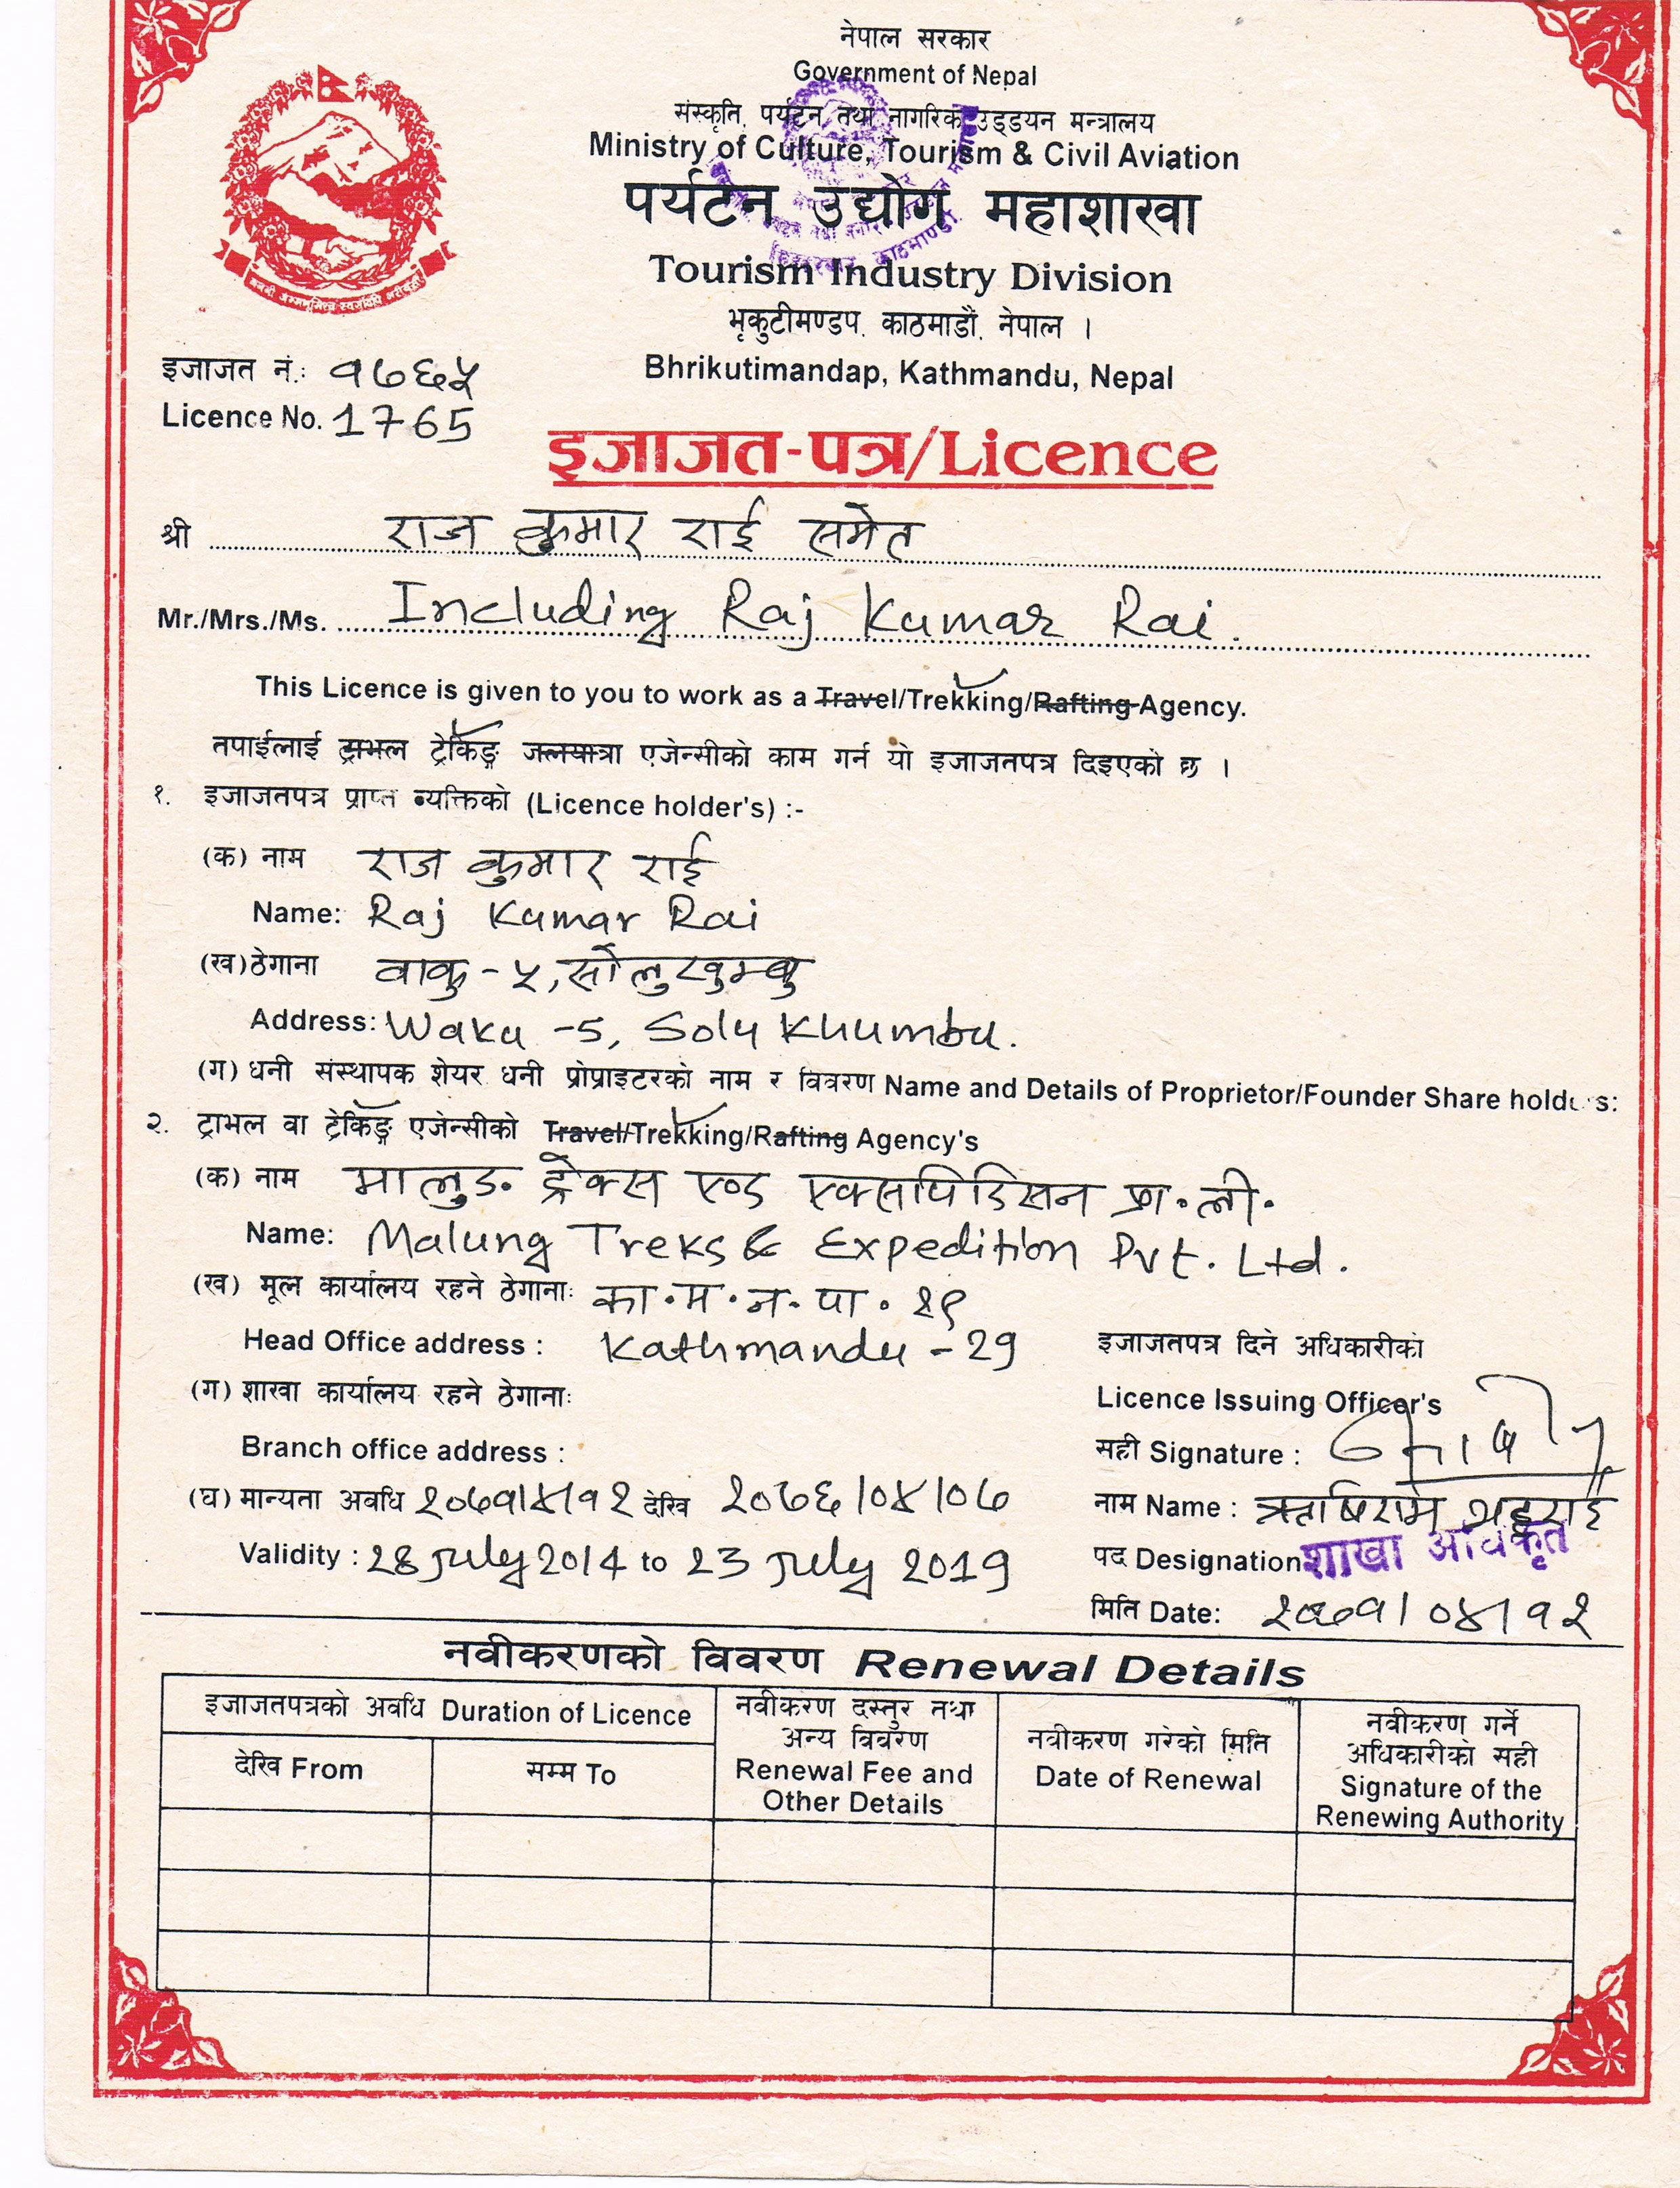 नेपाल सरकार
Government of Nepal
संस्कृति, पर्यटन तथा नागरिक उड्डयन मन्त्रालय
Ministry of Culture, Tourism & Civil Aviation
पर्यटन उद्योग महाशाखा
Tourism Industry Division
भृकुटीमण्डप, काठमाडौं, नेपाल ।
Bhrikutimandap, Kathmandu, Nepal
इजाजत नं.: १७६५
Licence No. 1765
इजाजत-पत्र/Licence
श्री राज कुमार राई समेत
Mr./Mrs./Ms. Including Raj Kumar Rai.
This Licence is given to you to work as a Travel/Trekking/Rafting Agency.
तपाईलाई ट्राभल ट्रेकिङ्ग जलयात्रा एजेन्सीको काम गर्न यो इजाजतपत्र दिइएको छ ।
१. इजाजतपत्र प्राप्त व्यक्तिको (Licence holder's) :-
(क) नाम राज कुमार राई
Name: Raj Kumar Rai
(ख) ठेगाना वाकु - ५, सोलुखुम्बु
Address: Waku -5, Solukhumbu.
(ग) धनी संस्थापक शेयर धनी प्रोप्राइटरको नाम र विवरण Name and Details of Proprietor/Founder Share holders:
२. ट्राभल वा ट्रेकिङ्ग एजेन्सीको Travel/Trekking/Rafting Agency's
(क) नाम मालुङ ट्रेक्स एण्ड एक्सपिडिसन प्रा.ली.
Name: Malung Treks & Expedition Pvt. Ltd.
(ख) मूल कार्यालय रहने ठेगानाः का.म.न.पा. २९
Head Office address : Kathmandu - 29
(ग) शाखा कार्यालय रहने ठेगानाः
Branch office address :
(घ) मान्यता अवधि २०७१/४/१२ देखि २०७६/०४/०७
Validity : 28 July 2014 to 23 July 2019
इजाजतपत्र दिने अधिकारीको
Licence Issuing Officer's
सही Signature :
नाम Name : ऋषिराम भट्टराई
पद Designation शाखा अधिकृत
मिति Date: २०७१/०४/१२
नवीकरणको विवरण Renewal Details
इजाजतपत्रको अवधि Duration of Licence
देखि From
सम्म To
नवीकरण दस्तुर तथा
अन्य विवरण
Renewal Fee and
Other Details
नवीकरण गरेको मिति
Date of Renewal
नवीकरण गर्ने
अधिकारीको सही
Signature of the
Renewing Authority